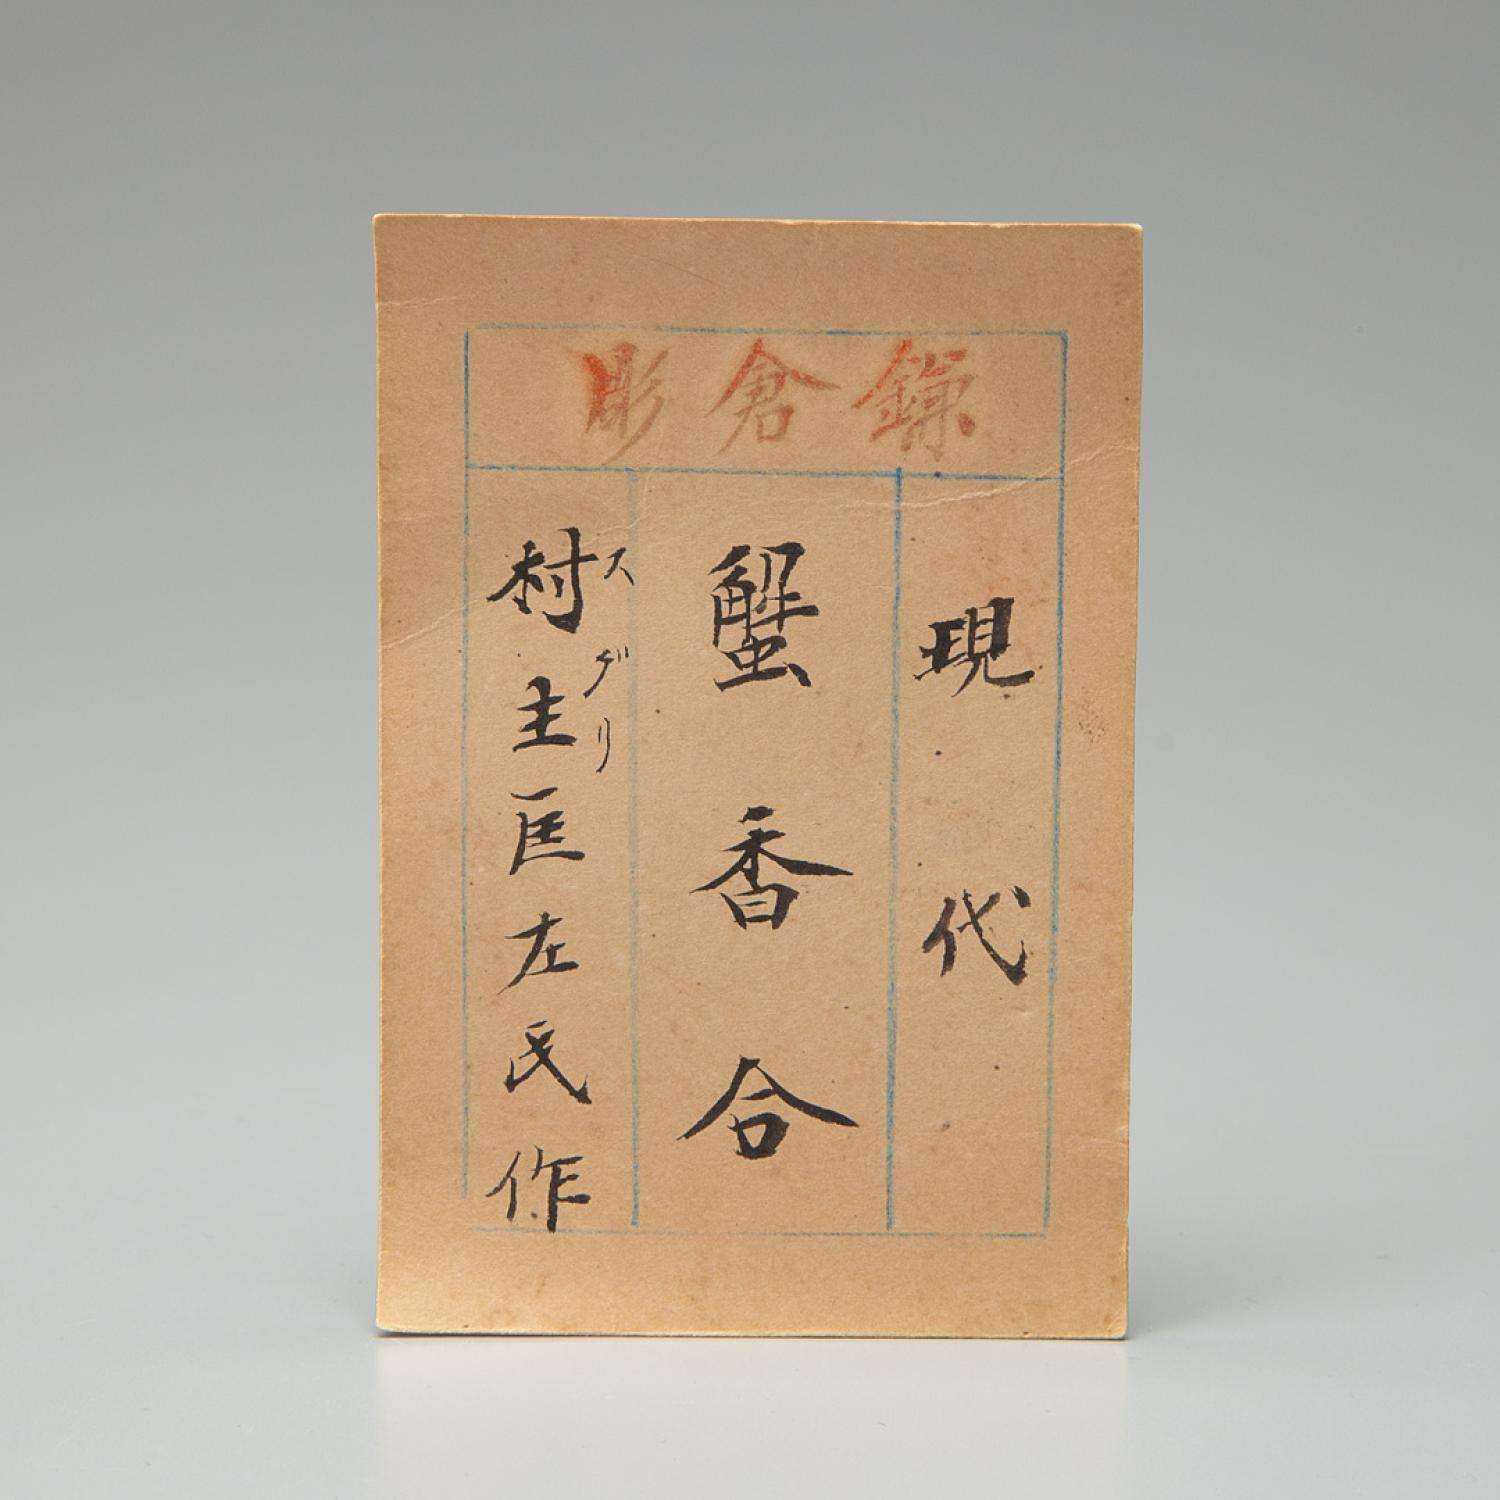 鎌倉彫
現代
蟹香合
村主匡左氏作
スグリ